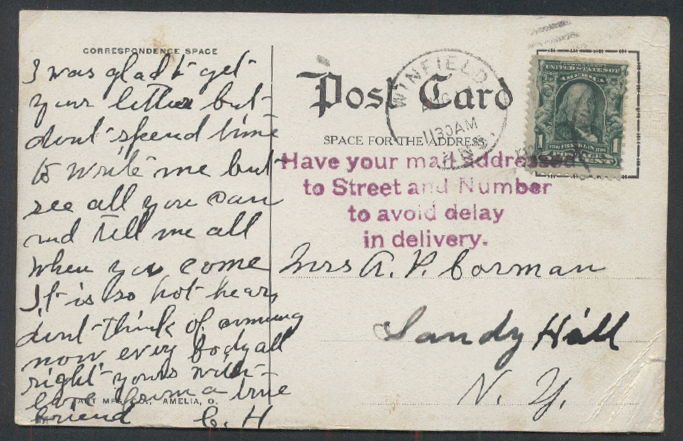 CORRESPONDENCE SPACE
I was glad to get
your letter but
dont spend time
to write me but
see all you can
and tell me all
when you come
It is so hot hear
dont think of comming
now every body all
right yours with
love from a true
friend C. H
AMELIA, O.
Post Card
SPACE FOR THE ADDRESS
WINFIELD
1130AM
UNITED STATES OF
AMERICA
1 FRANKLIN 1
Have your mail addressed
to Street and Number
to avoid delay
in delivery.
Mrs A. P. Corman
Sandy Hill
N. Y.